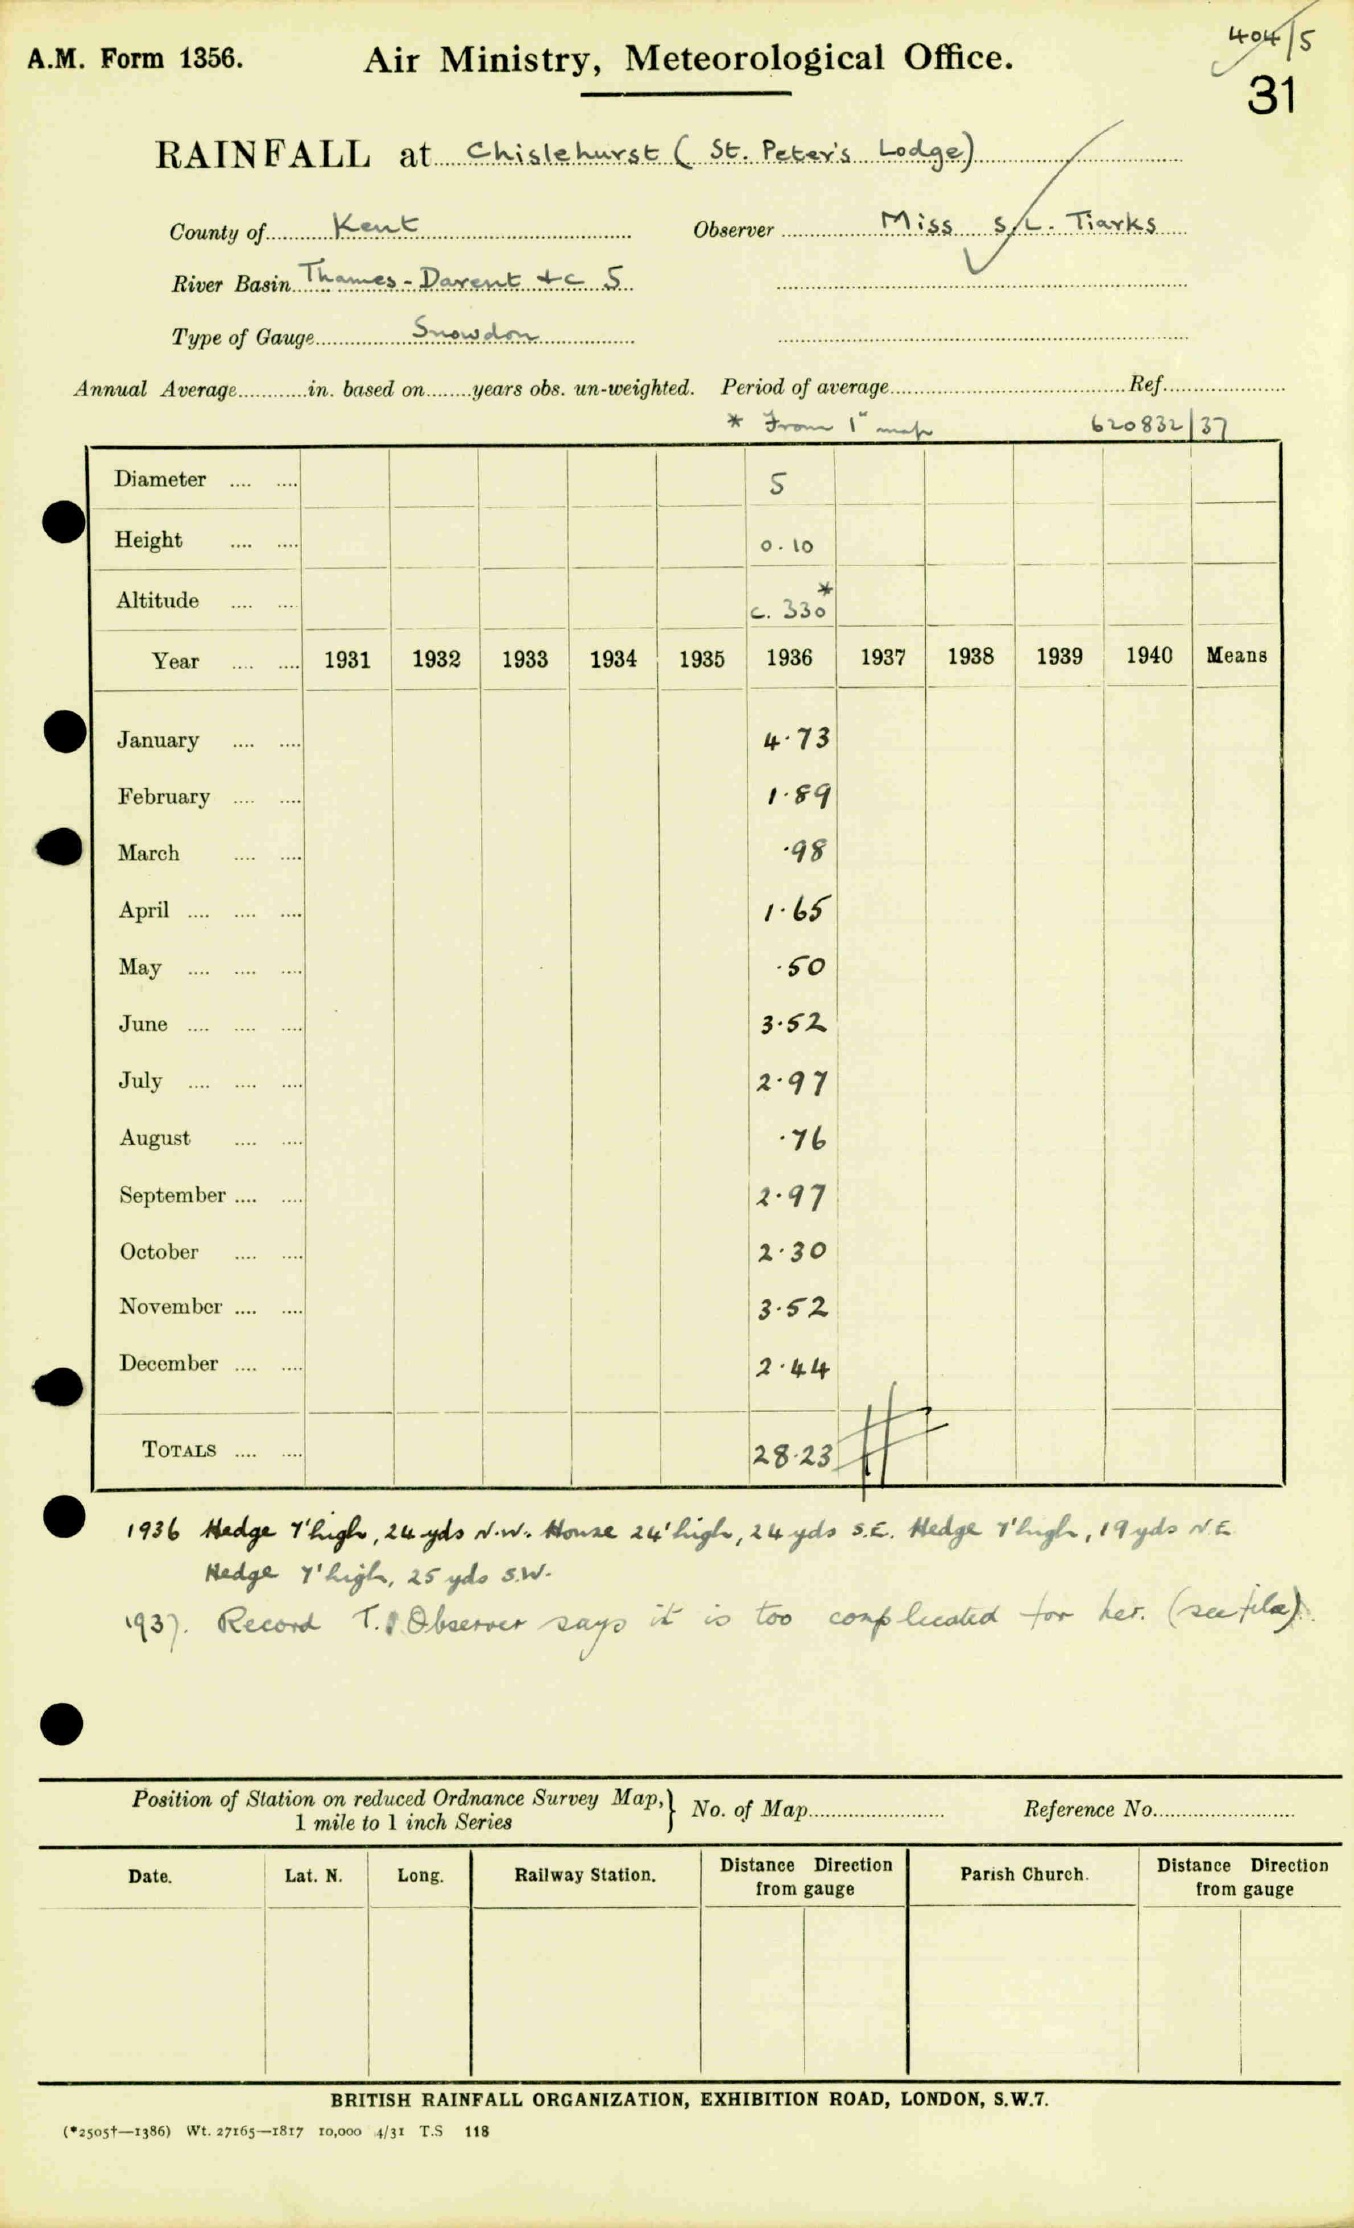 404/5
A.M. Form 1356. Air Ministry, Meteorological Office.
31
RAINFALL at Chislehurst (St. Peter's Lodge)
County of Kent Observer Miss S.L. Tiarks
River Basin Thames - Darent +c 5
Type of Gauge Snowdon
Annual Average............in. based on........years obs. un-weighted. Period of average............Ref............
* From 1" map 620832/37
Diameter .... .... 5
Height .... .... 0.10
Altitude .... .... c. 330*
Year .... .... 1931 1932 1933 1934 1935 1936 1937 1938 1939 1940 Means
January .... .... 4.73
February .... .... 1.89
March .... .... .98
April .... .... .... 1.65
May .... .... .... .50
June .... .... .... 3.52
July .... .... .... 2.97
August .... .... .76
September .... .... 2.97
October .... .... 2.30
November .... .... 3.52
December .... .... 2.44
TOTALS .... .... 28.23
1936 Hedge 7' high, 24 yds N.W. House 24' high, 24 yds S.E. Hedge 7' high, 19 yds N.E
Hedge 7' high, 25 yds S.W.
1937. Record T. Observer says it is too complicated for her. (see file).
Position of Station on reduced Ordnance Survey Map, } No. of Map............ Reference No............
1 mile to 1 inch Series
Date. Lat. N. Long. Railway Station. Distance Direction from gauge Parish Church. Distance Direction from gauge
BRITISH RAINFALL ORGANIZATION, EXHIBITION ROAD, LONDON, S.W.7.
(*2505†—1386) Wt. 27165—1817 10,000 4/31 T.S 118